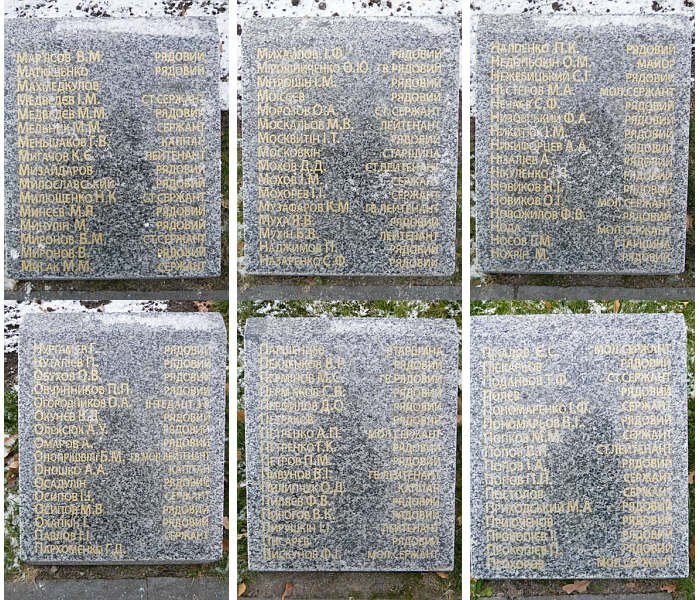 Марасов В.М. рядовий
Матюшенко рядовий
Махмедкулов
Медведєв І.М. ст.сержант
Медведєв М.М. рядовий
Мельник М.М. сержант
Меньшаков Г.В. капітан
Мигачов К.Є. лейтенант
Мизайдаров рядовий
Милославський рядовий
Милюшенко Н.К. ст.сержант
Минєєв М.Я. рядовий
Минулін М. рядовий
Миронов Б.М. ст.сержант
Миронов В. рядовий
Могак М.М. сержант
Михайлов І.Ф. рядовий
Мірошниченко О.Ю. гв.рядовий
Мітрошин І.М. рядовий
Моісєєв рядовий
Морозов О.А. ст.сержант
Москальов М.В. лейтенант
Москвитін І.Т. рядовий
Московкін старшина
Мохов Д.Д. ст.лейтенант
Мохов І.М. сержант
Мокрєєв І.І. сержант
Музафаров К.М. гв.лейтенант
Муха Н.В. рядовий
Мухін Б.В. лейтенант
Наджимов П. рядовий
Назаренко С.Ф. рядовий
Налпенко П.К. рядовий
Недельошін О.М. майор
Нежебицький С.Г. рядовий
Нестеров М.А. мол.сержант
Нечаєв С.Ф. рядовий
Низовський Ф.А. рядовий
Никитюк І.М. рядовий
Никифорцев А.А. рядовий
Нізалієв А. рядовий
Нікуленко Г.Д. рядовий
Новиков Н.І. рядовий
Новиков О.І. мол.сержант
Новожилов Ф.В. рядовий
Нода мол.сержант
Носов Г.М. старшина
Нохрін М. рядовий
Нургалієв Г. рядовий
Нугалієв П. рядовий
Обухов О.В. рядовий
Овчинников П.П. рядовий
Огородчиков О.А. інтендант 3 р.
Окунєв В.Д. рядовий
Олексюк А.У. рядовий
Омаров А. рядовий
Оноприєнко Б.М. гв.мол.лейтенант
Оношко А.А. капітан
Осадулін рядовий
Осипов І.І. сержант
Осипов М.В. рядовий
Охапкін І. рядовий
Павлов І.І. сержант
Пархоменко Г.Д.
Паршенцев старшина
Пекленков В.Г. рядовий
Перминов М.С. гв.рядовий
Пермяков Є.В. рядовий
Перфілов Д.О. рядовий
Петраков рядовий
Петренко А.П. мол.сержант
Петренко Г.К. рядовий
Петров П.М. рядовий
Пивунов В.Г. гв.лейтенант
Пилипчик О.Д. капітан
Пиляєв Ф.В. рядовий
Пирогов В.К. рядовий
Пирушкін І.І. лейтенант
Писарев рядовий
Пискунов Ф.Г. мол.сержант
Пікалов Є.С. мол.сержант
Піскарьов рядовий
Поданьов Т.Ф. ст.сержант
Полєв рядовий
Пономаренко І.Ф. сержант
Пономарьов В.Г. рядовий
Попков М.М. сержант
Попов В.К. ст.лейтенант
Попов Г.А. рядовий
Попов П.П. сержант
Постолов сержант
Приходський М.А. рядовий
Приюченов рядовий
Прокопів І. рядовий
Прокопієв П. рядовий
Прохоров мол.сержант